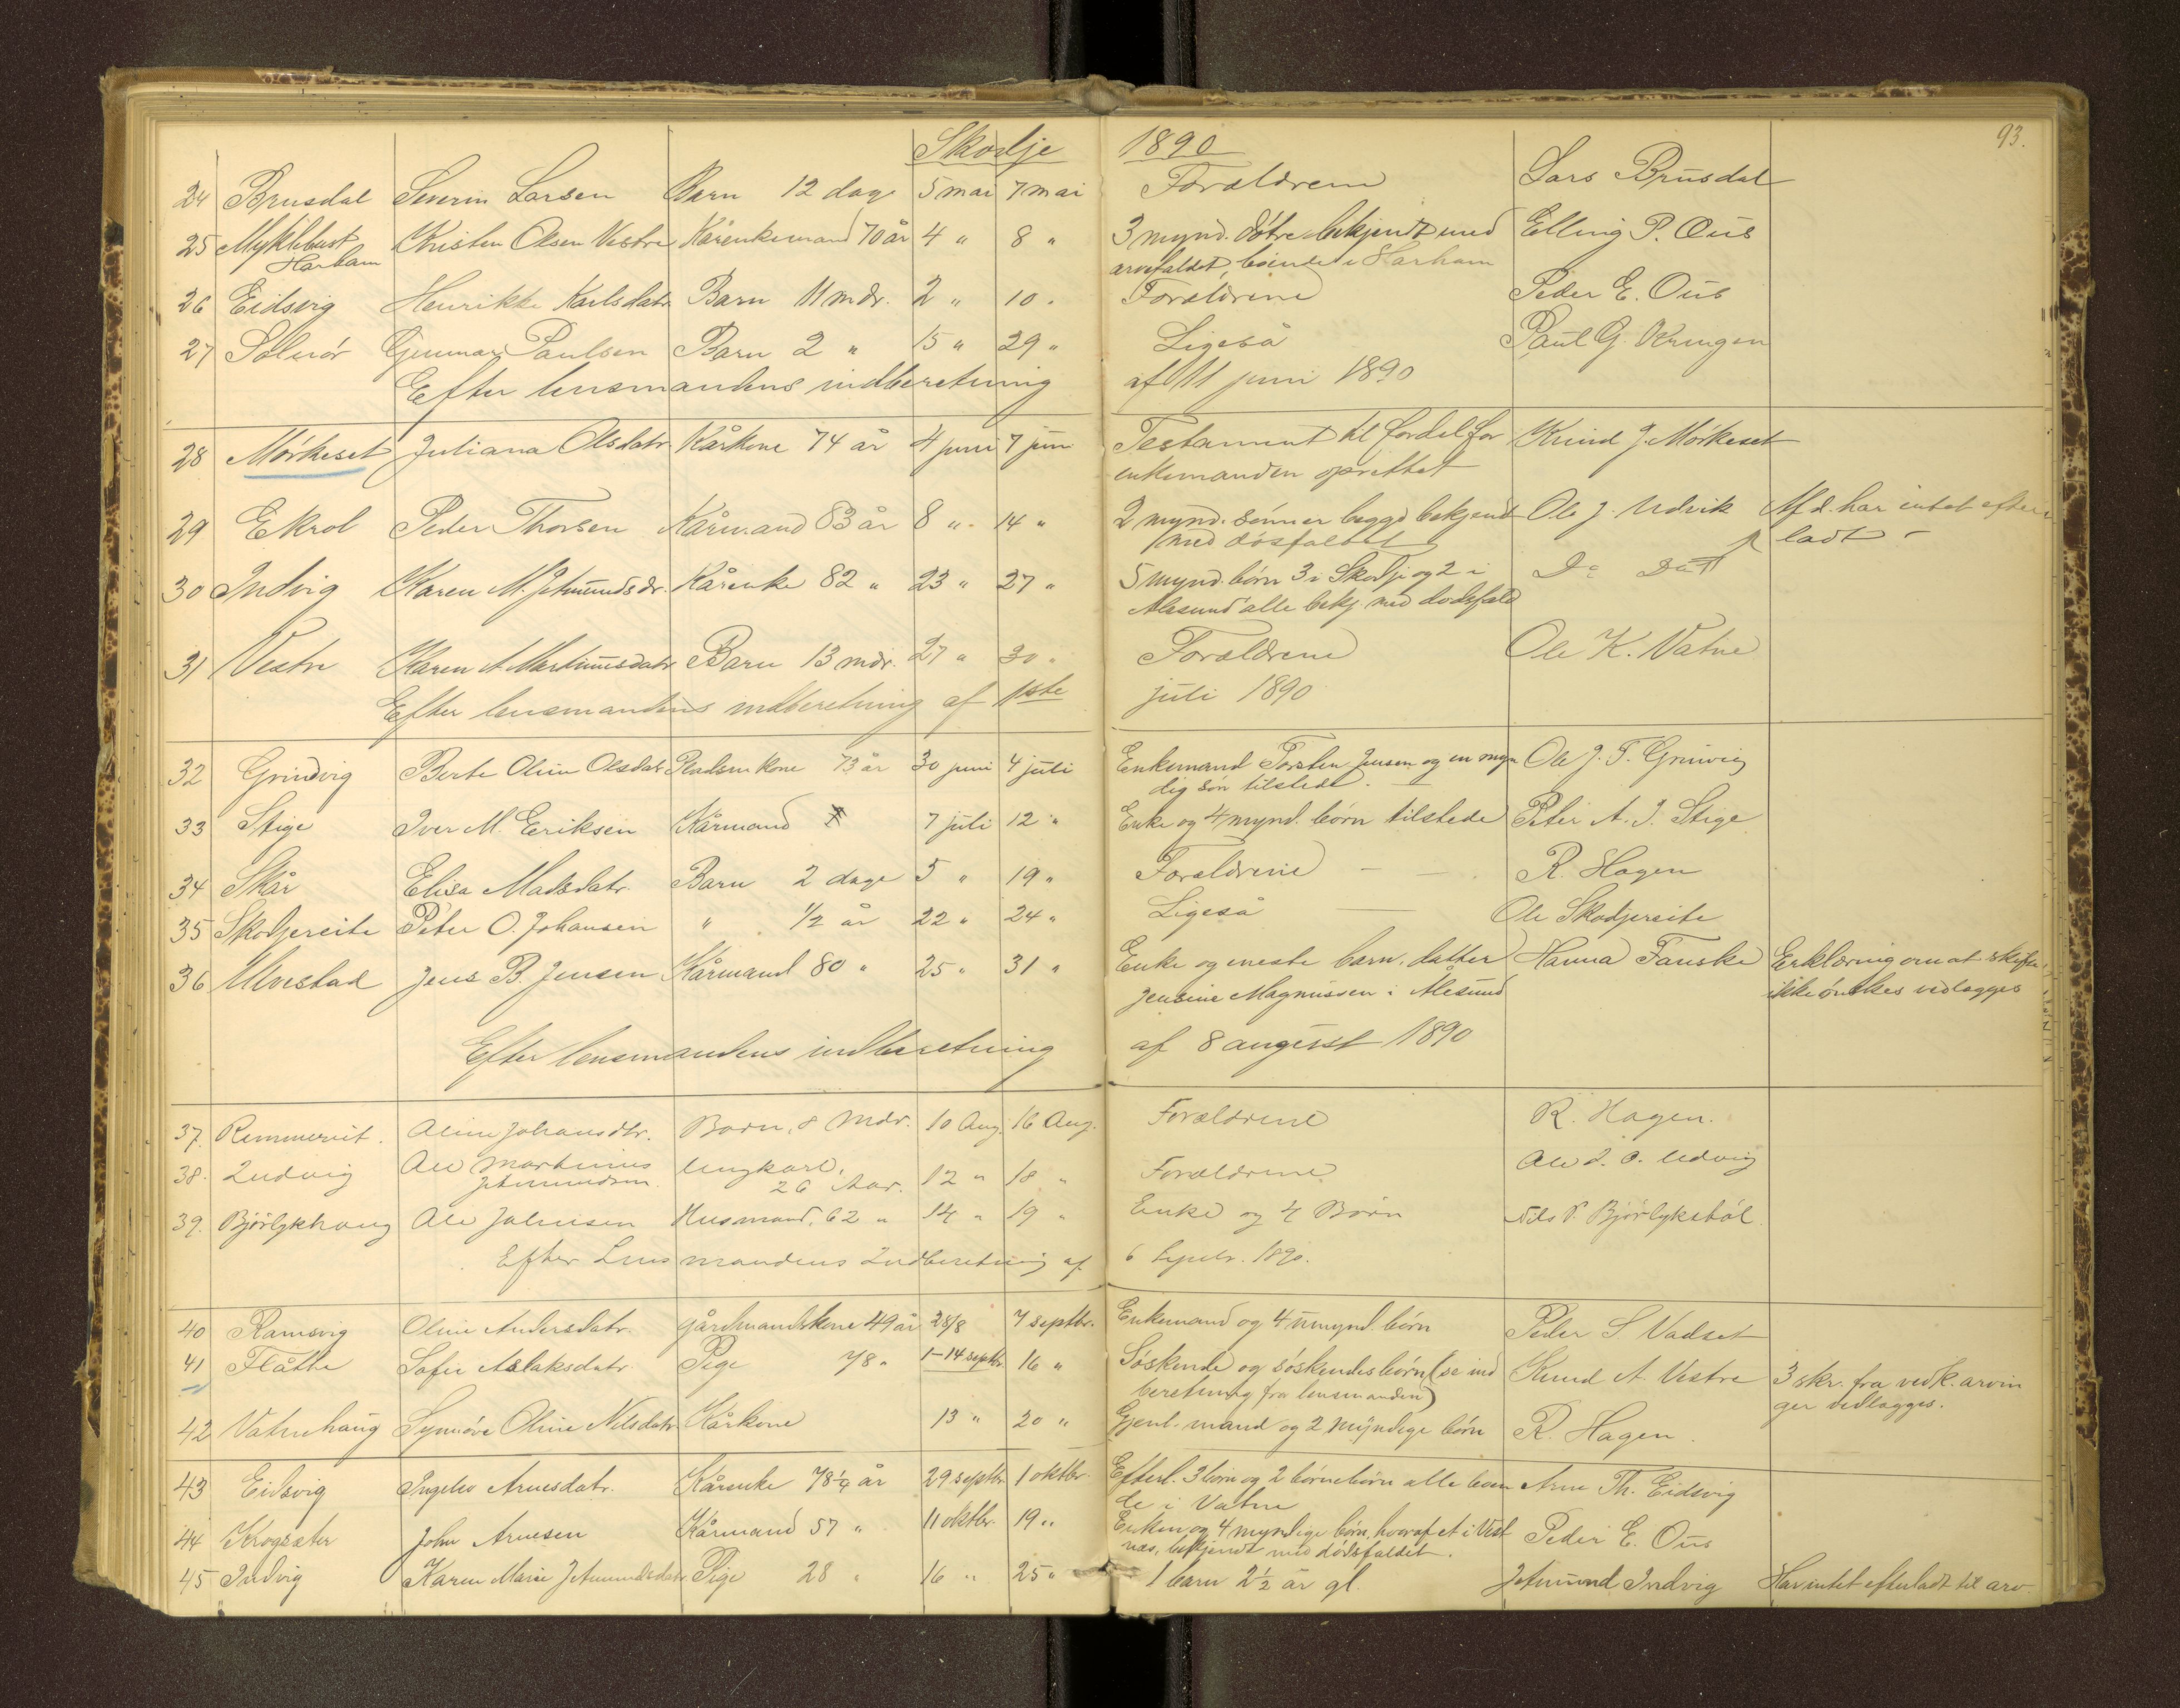 Skodje 1890
93.
24 Brusdal Severin Larsen Barn 12 dage 5 mai 7 mai Forældrene Lars Brusdal
25 Myklebust Kristen Olsen Vestre Kårenkemand 70 år 4 " 8 " 3 mynd. døtre bekjendt med Elling P. Ous
Harham arvefaldet, boende i Harham
26 Eidsvig Henrikke Karlsdatr Barn 11 mdr. 2 " 10 " Forældrene Peder E. Ous
27 Solnør Gunnar Paulsen Barn 2 " 15 " 29 " Ligeså Paul G. Kringen
Efter lensmandens indberetning af 11 juni 1890
28 Mørkeset Juliana Olsdatr Kårkone 74 år 4 juni 7 juni Testament til fordel for Knud J. Mørkeset
enkemanden oprettet
29 Ekrol Peder Thorsen Kårmand 83 år 8 " 14 " 2 mynd. sønner begge bekjendt Ole J. Udvik Afd. har intet efter-
med dødsfaldet ladt -
30 Indvig Karen M. Jetmundsdr. Kårenke 82 " 23 " 27 " 5 mynd. børn 3 i Skodje og 2 i Do Do
Ålesund alle bekj. med dødsfald
31 Vestre Karen A. Martinusdatr Barn 13 mdr. 27 " 30 " Forældrene Ole K. Vatne
Efter lensmandens indberetning af 11te juli 1890
32 Grindvig Berte Oline Olsdatr Pladsmkone 73 år 30 juni 4 juli Enkemand Torsten Jensen og en myn Ole J. T. Grinvig
dig søn tilstede.
33 Stige Iver M. Eriksen Kårmand 7 juli 12 " Enke og 4 mynd. børn tilstede Peter A. I. Stige
34 Skår Elisa Madsdatr. Barn 2 dage 5 " 19 " Forældrene - - R. Hagen
35 Skodjereite Peter O. Johansen " 1/2 år 22 " 24 " Ligeså Ole Skodjereite
36 Ulvestad Jens B. Jensen Kårmand 80 " 25 " 31 " Enke og eneste barn, datter Hanna Fauske Erklæring om at skifte
Jensine Magnussen i Ålesund ikke ønskes vedlægges
Efter lensmandens indberetning af 8 august 1890
37. Remmereit. Oline Johansdtr. Barn, 8 Mdr. 10 Aug. 16 Aug. Forældrene R. Hagen.
38. Indvig Ole Martinus Ungkarl, 12 " 18 " Forældrene Ole J. O. Udvig
Jetmundsen 26 Aar.
39. Bjørlykhaug Ole Johnsen Husmand, 62 " 14 " 19 " Enke og 4 Børn Nils P. Bjørlykebøl
Efter Lensmandens Indberetning af 6 Septbr. 1890.
40 Ramsvig Oline Andersdatr. gårdmandskone 49 år 28/8 7 septbr. Enkemand og 4 umynd. børn Peder S. Vadset
41 Flåthe Sofie Aslaksdatr. Pige 78 " 1-14 septbr. 16 " Søskende og søskendesbørn (se ind Knud A. Vestre 3 skr. fra vedk. arvin
beretning fra lensmanden) ger vedlægges.
42 Vatnehaug Synnøve Oline Nilsdatr. Kårkone 13 " 20 " Gjenl. mand og 2 myndige børn R. Hagen.
43 Eidsvig Ingelev Arnesdatr. Kårenke 78 1/4 år 29 septbr. 1 oktbr. Efterl. 3 børn og 2 børnebørn alle boen Arne Th. Eidsvig
de i Vatne
44 Krogsæter John Arnesen Kårmand 57 " 11 oktbr. 19 " Enken og 4 myndige børn, hvoraf et i Vest Peder E. Ous
næs, bekjendt med dødsfaldet.
45 Indvig Karen Marie Jetmundsdatr Pige 28 " 16 " 25 " 1 barn 2 1/2 år gl. Jetmund Indvig Har intet efterladt til arv.